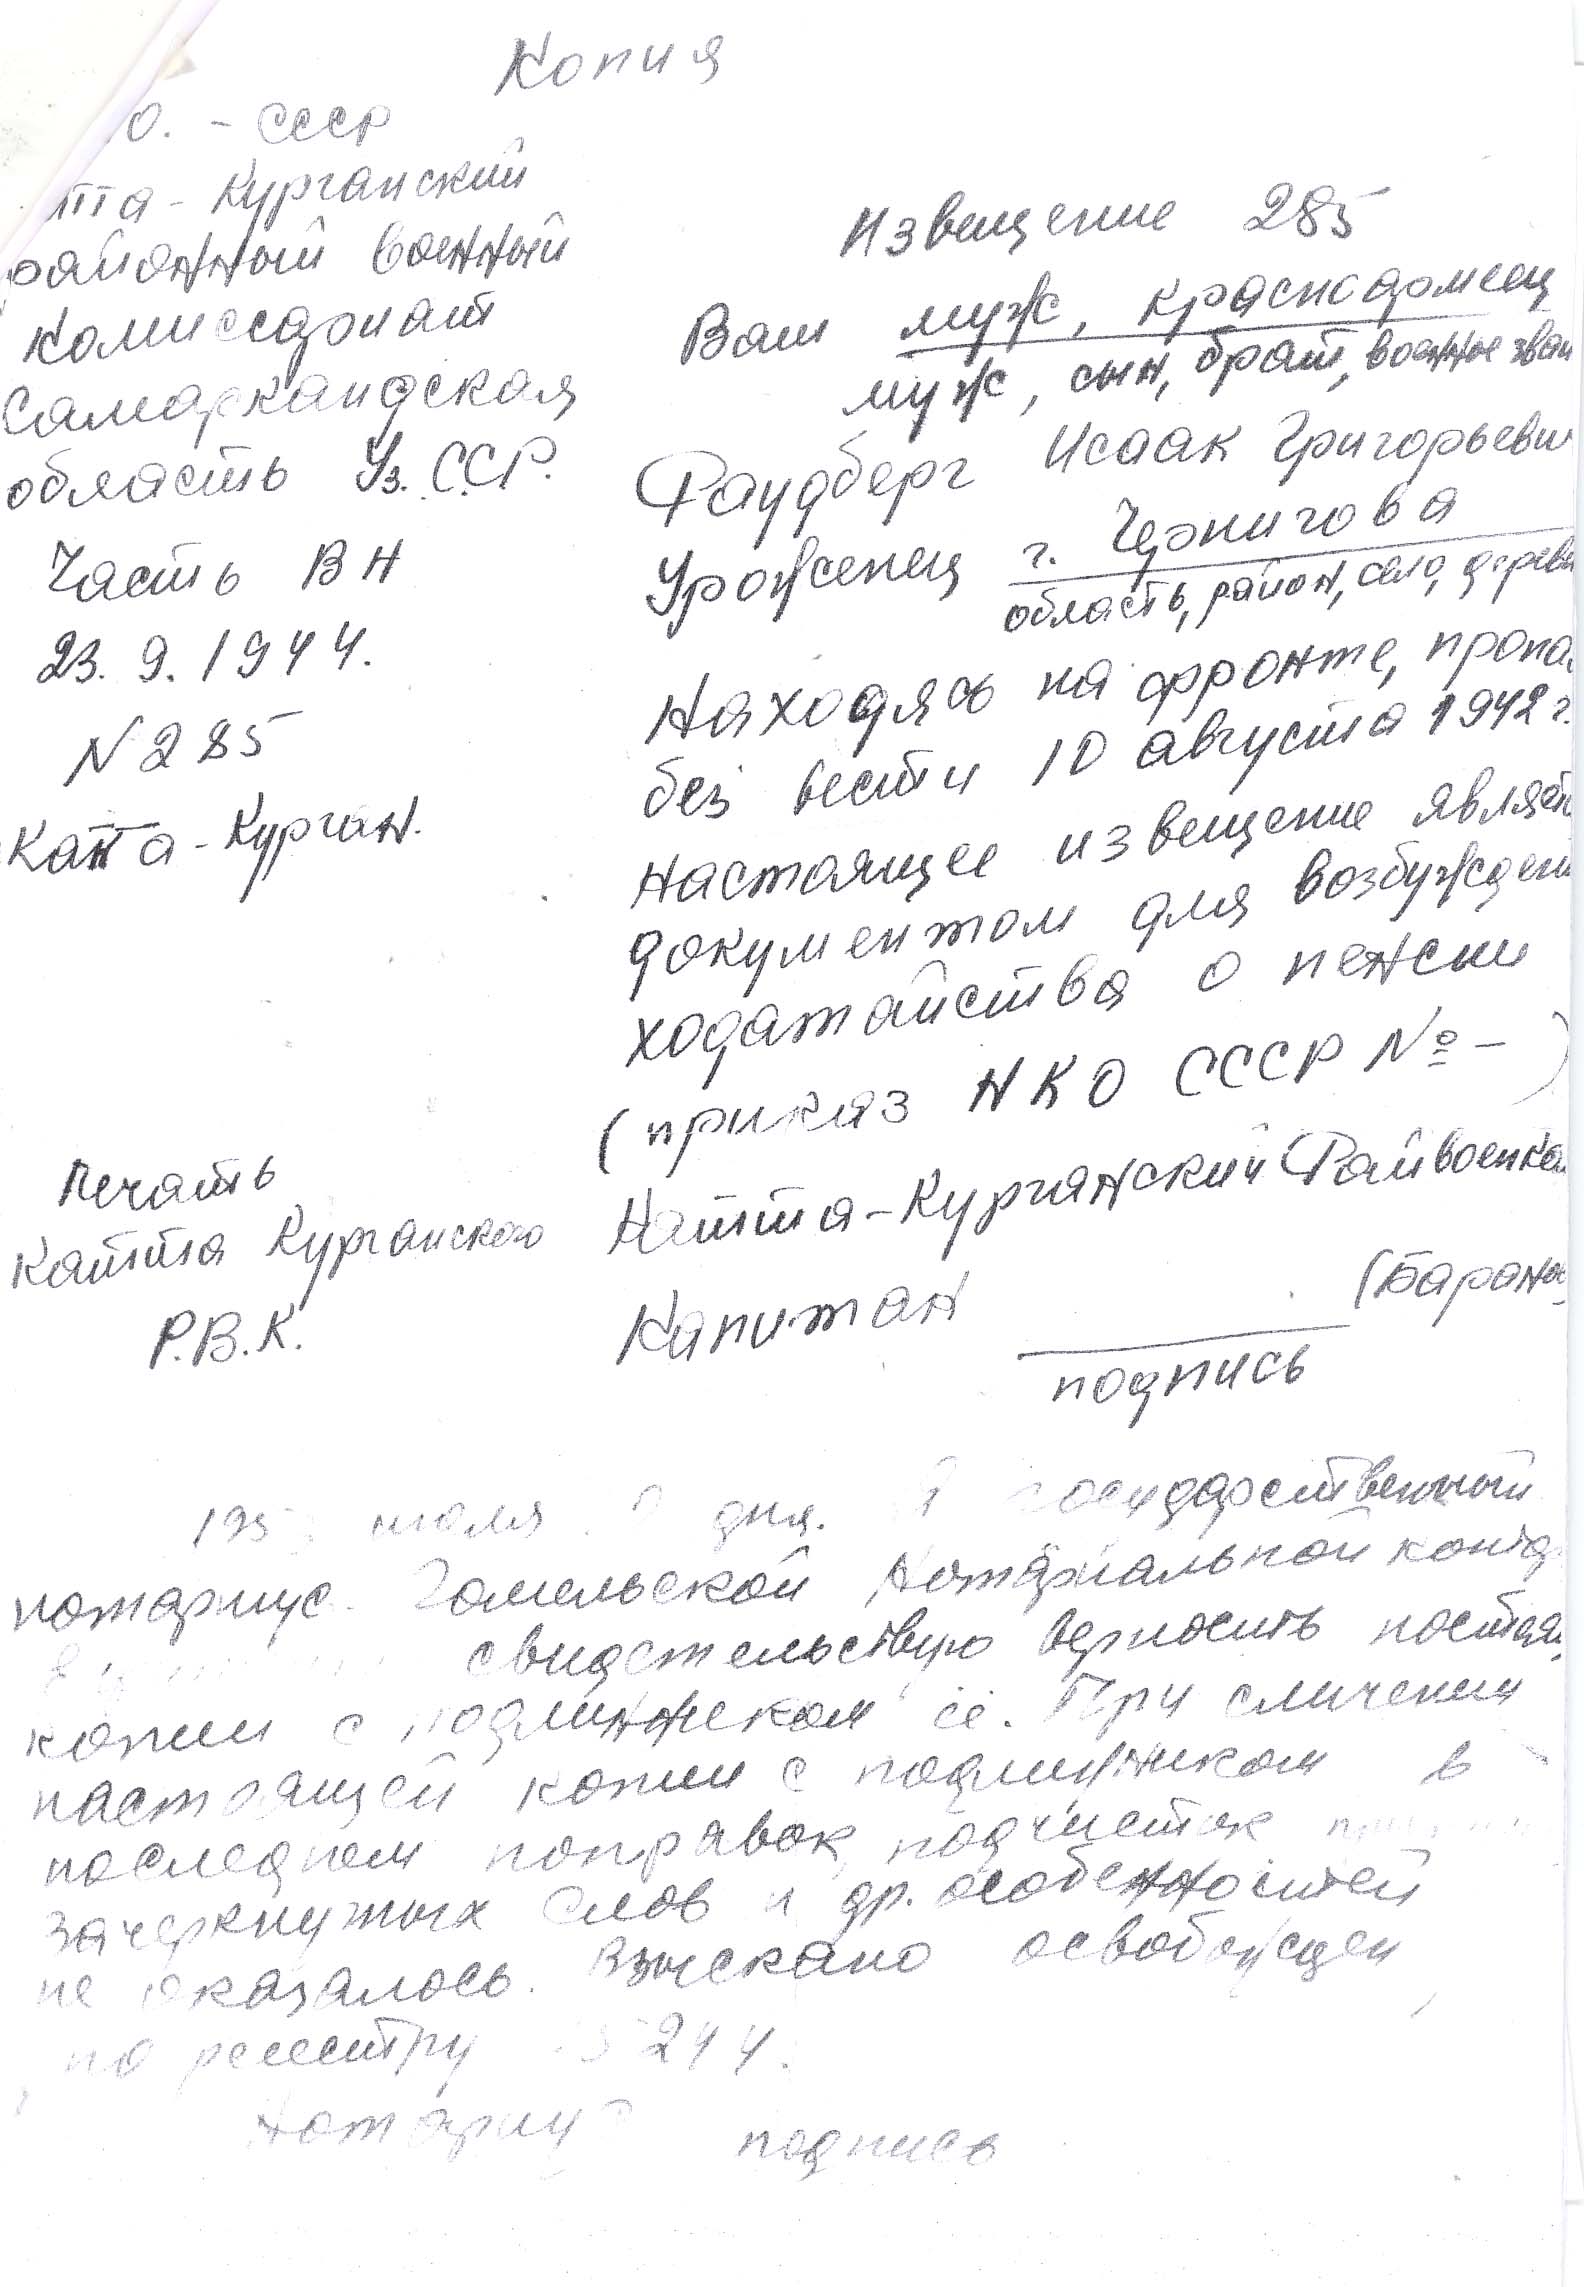 Копия
О. - СССР
тта - Курганский
районный военный
комиссариат
Самаркандская
область Уз. С.С.Р.
Часть ВН
23. 9. 1944.
N 285
Катта - Курган.
Печать
Катта Курганского
Р.В.К.
Извещение 285
Ваш муж, красноармеец
муж, сын, брат, военное зван
Раудберг Исаак Григорьевич
Уроженец г. Чернигова
область, район, село, дерев
Находясь на фронте, пропа
без вести 10 августа 1942 г.
Настоящее извещение являет
документом для возбужден
ходатайства о пенсии
(приказ НКО СССР № - )
Катта-Курганский Райвоенко
Капитан (Баранов
подпись
195 июля дня. Я государственный
нотариус Гомельской Нотариальной конто
свидетельствую верность настоя
копии с подлинником ее. При сличении
настоящей копии с подлинником в
последнем поправок, подчисток
зачеркнутых слов и др. особенностей
не оказалось. Взыскано
по реестру 5244.
Нотариус подпись